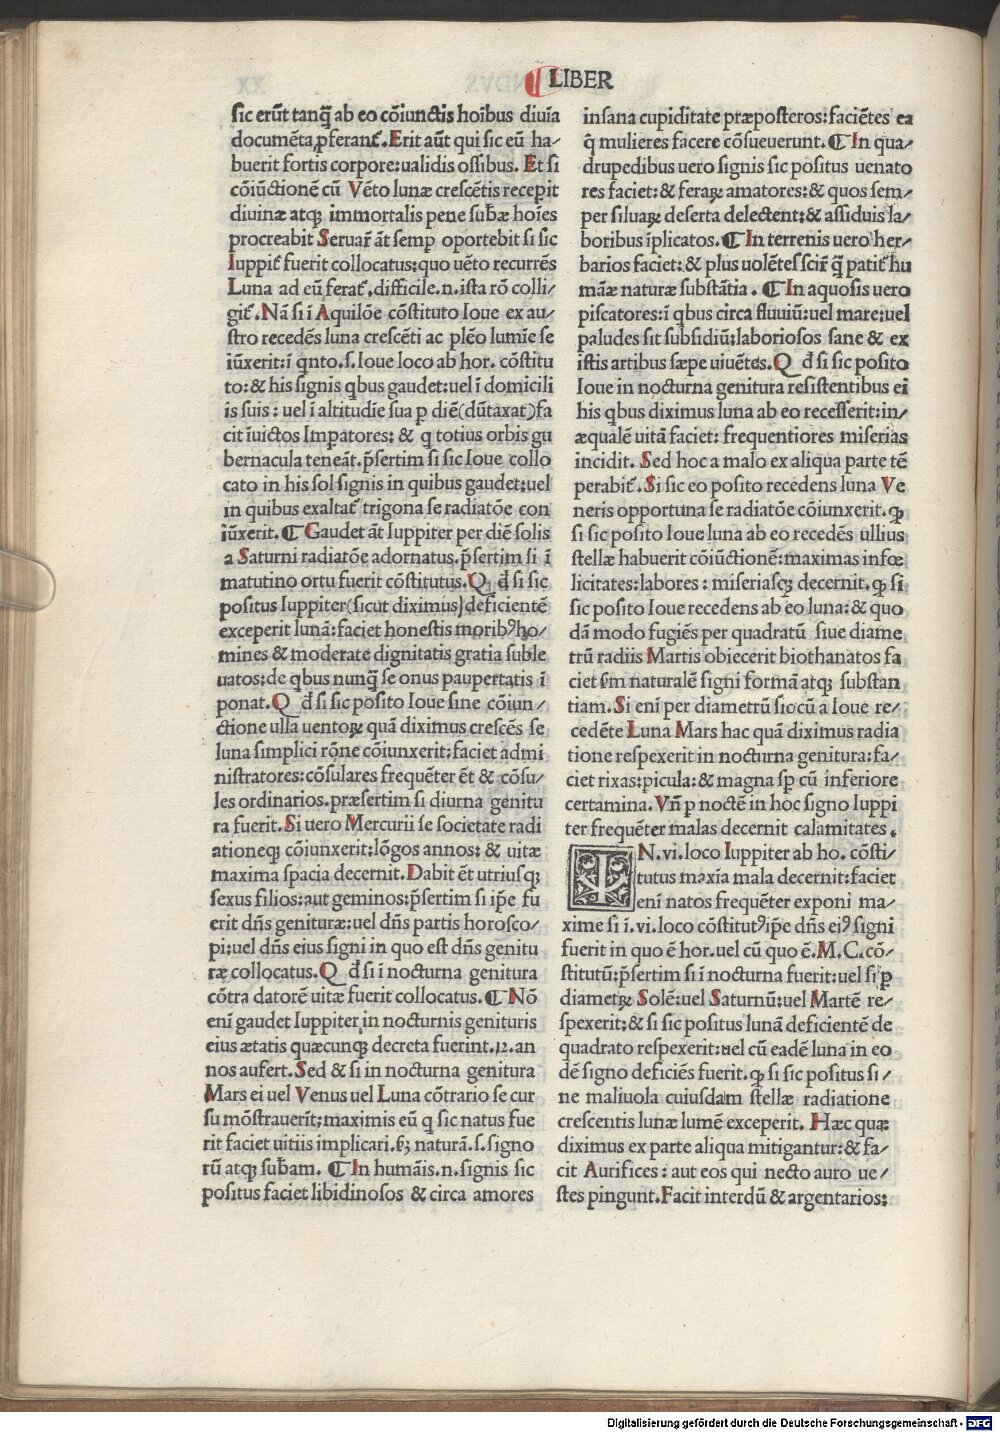 LIBER
sic erũt tanq̃ ab eo cõiunctis hoibus diuia
documẽta ꝓferant᷑. Erit aũt qui sic eũ ha/
buerit fortis corpore: ualidis ossibus. Et si
cõiũctionẽ cũ Vẽto lunæ crescẽtis recepit
diuinæ atqꝫ immortalis pene subæ hoĩes
procreabit Seruar̃ ãt semp oportebit si sic
Iuppit᷑ fuerit collocatus: quo uẽto recurrẽs
Luna ad eũ ferat᷑. difficile .n. ista rõ colli/
git᷑. Nã si ĩ Aquilõe cõstituto Ioue ex au/
stro recedẽs luna crescẽti ac plẽo lumĩe se
iũxerit: ĩ qnto .s. Ioue loco ab hor. cõstitu
to: & his signis qbus gaudet: uel ĩ domicili
is suis: uel ĩ altitudĩe sua p diẽ (dũtaxat) fa
cit ĩuictos Imꝑatores: & q totius orbis gu
bernacula teneãt. p̃sertim si sic Ioue collo
cato in his sol signis in quibus gaudet: uel
in quibus exaltat᷑ trigona se radiatõe con
iũxerit. ¶ Gaudet ãt Iuppiter per diẽ solis
a Saturni radiatõe adornatus. p̃sertim si ĩ
matutino ortu fuerit cõstitutus. Q d̃ si sic
positus Iuppiter (sicut diximus) deficientẽ
exceperit lunã: faciet honestis moribꝰ ho/
mines & moderate dignitatis gratia suble
uatos: de qbus nunq̃ se onus paupertatis ĩ
ponat. Q d̃ si sic posito Ioue sine cõiun/
ctione ulla uentoꝝ quã diximus crescẽs se
luna simplici rõne cõiunxerit: faciet admi
nistratores: cõsulares frequẽter ẽt & cõsu/
les ordinarios. præsertim si diurna genitu
ra fuerit. Si uero Mercurii se societate radi
ationeqꝫ cõiunxerit: lõgos annos: & uitæ
maxima spacia decernit. Dabit ẽt utriusqꝫ
sexus filios: aut geminos: p̃sertim si ip̃e fu
erit dñs genituræ: uel dñs partis horosco/
pi: uel dñs eius signi in quo est dñs genitu
ræ collocatus. Q d̃ si ĩ nocturna genitura
cõtra datorẽ uitæ fuerit collocatus. ¶ Nõ
enĩ gaudet Iuppiter in nocturnis genituris
eius ætatis quæcunqꝫ decreta fuerint .12. an
nos aufert. Sed & si in nocturna genitura
Mars ei uel Venus uel Luna cõtrario se cur
su mõstrauerit: maximis eũ q sic natus fue
rit faciet uitiis implicari. ẜꝫ naturã .s. signo
rũ atqꝫ subam. ¶ In humãis .n. signis sic
positus faciet libidinosos & circa amores
insana cupiditate præposteros: faciẽtes ea
q̃ mulieres facere cõsueuerunt. ¶ In qua/
drupedibus uero signis sic positus uenato
res faciet: & feraꝝ amatores: & quos sem/
per siluaꝝ deserta delectent: & assiduis la/
boribus ĩplicatos. ¶ In terrenis uero her/
barios faciet: & plus uolẽtes scir̃ q̃ patit᷑ hu
mãæ naturæ substãtia. ¶ In aquosis uero
piscatores: ĩ qbus circa fluuiũ: uel mare: uel
paludes sit subsidiũ: laboriosos sane & ex
istis artibus sæpe uiuẽtes. Q d̃ si sic posito
Ioue in nocturna genitura resistentibus ei
his qbus diximus luna ab eo recesserit: in/
æqualẽ uitã faciet: frequentiores miserias
incidit. Sed hoc a malo ex aliqua parte tẽ
perabit᷑. Si sic eo posito recedens luna Ve
neris opportuna se radiatõe cõiunxerit. ꝙ
si sic posito Ioue luna ab eo recedẽs ullius
stellæ habuerit cõiũctionẽ: maximas infœ
licitates: labores: miseriasqꝫ decernit. ꝙ si
sic posito Ioue recedens ab eo luna: & quo
dã modo fugiẽs per quadratũ siue diame
trũ radiis Martis obiecerit biothanatos fa
ciet ẜm naturalẽ signi formã atqꝫ substan
tiam. Si enĩ per diametrũ sic cũ a Ioue re/
cedẽte Luna Mars hac quã diximus radia
tione respexerit in nocturna genitura: fa/
ciet rixas: picula: & magna sp cũ inferiore
certamina. Vñ p noctẽ in hoc signo Iuppi
ter frequẽter malas decernit calamitates.
IN .vi. loco Iuppiter ab ho. cõsti/
tutus maxĩa mala decernit: faciet
enĩ natos frequẽter exponi ma/
xime si ĩ .vi. loco cõstitutꝰ ip̃e dñs eiꝰ signi
fuerit in quo ẽ hor. uel cũ quo ẽ. M. C. cõ/
stitutũ: p̃sertim si ĩ nocturna fuerit: uel si p
diametꝝ Solẽ: uel Saturnũ: uel Martẽ re/
spexerit: & si sic positus lunã deficientẽ de
quadrato respexerit: uel cũ eadẽ luna in eo
dẽ signo deficiẽs fuerit. ꝙ si sic positus si/
ne maliuola cuiusdam stellæ radiatione
crescentis lunæ lumẽ exceperit. Hæc quæ
diximus ex parte aliqua mitigantur: & fa/
cit Aurifices: aut eos qui necto auro ue/
stes pingunt. Facit interdũ & argentarios:
Digitalisierung gefördert durch die Deutsche Forschungsgemeinschaft - DFG